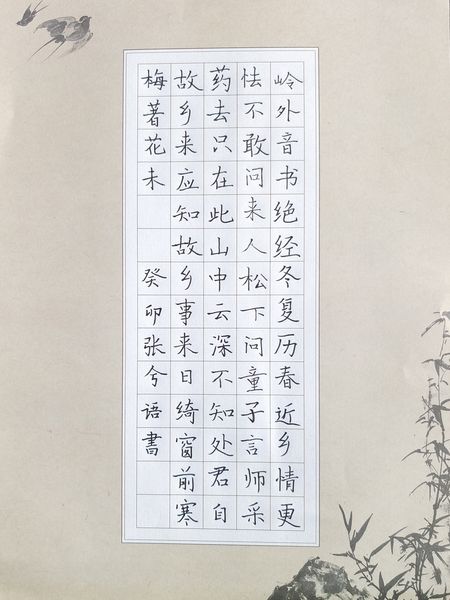 岭外音书绝经冬复历春近乡情更
怯不敢问来人松下问童子言师采
药去只在此山中云深不知处君自
故乡来应知故乡事来日绮窗前寒
梅著花未 癸卯张兮语書